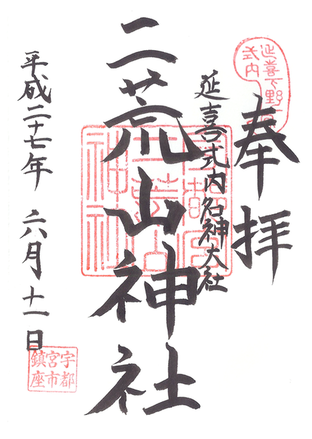 奉拝
延喜式内名神大社
二荒山神社
平成二十七年 六月十一日
延喜下野
式内
宇都
宮市
鎮座